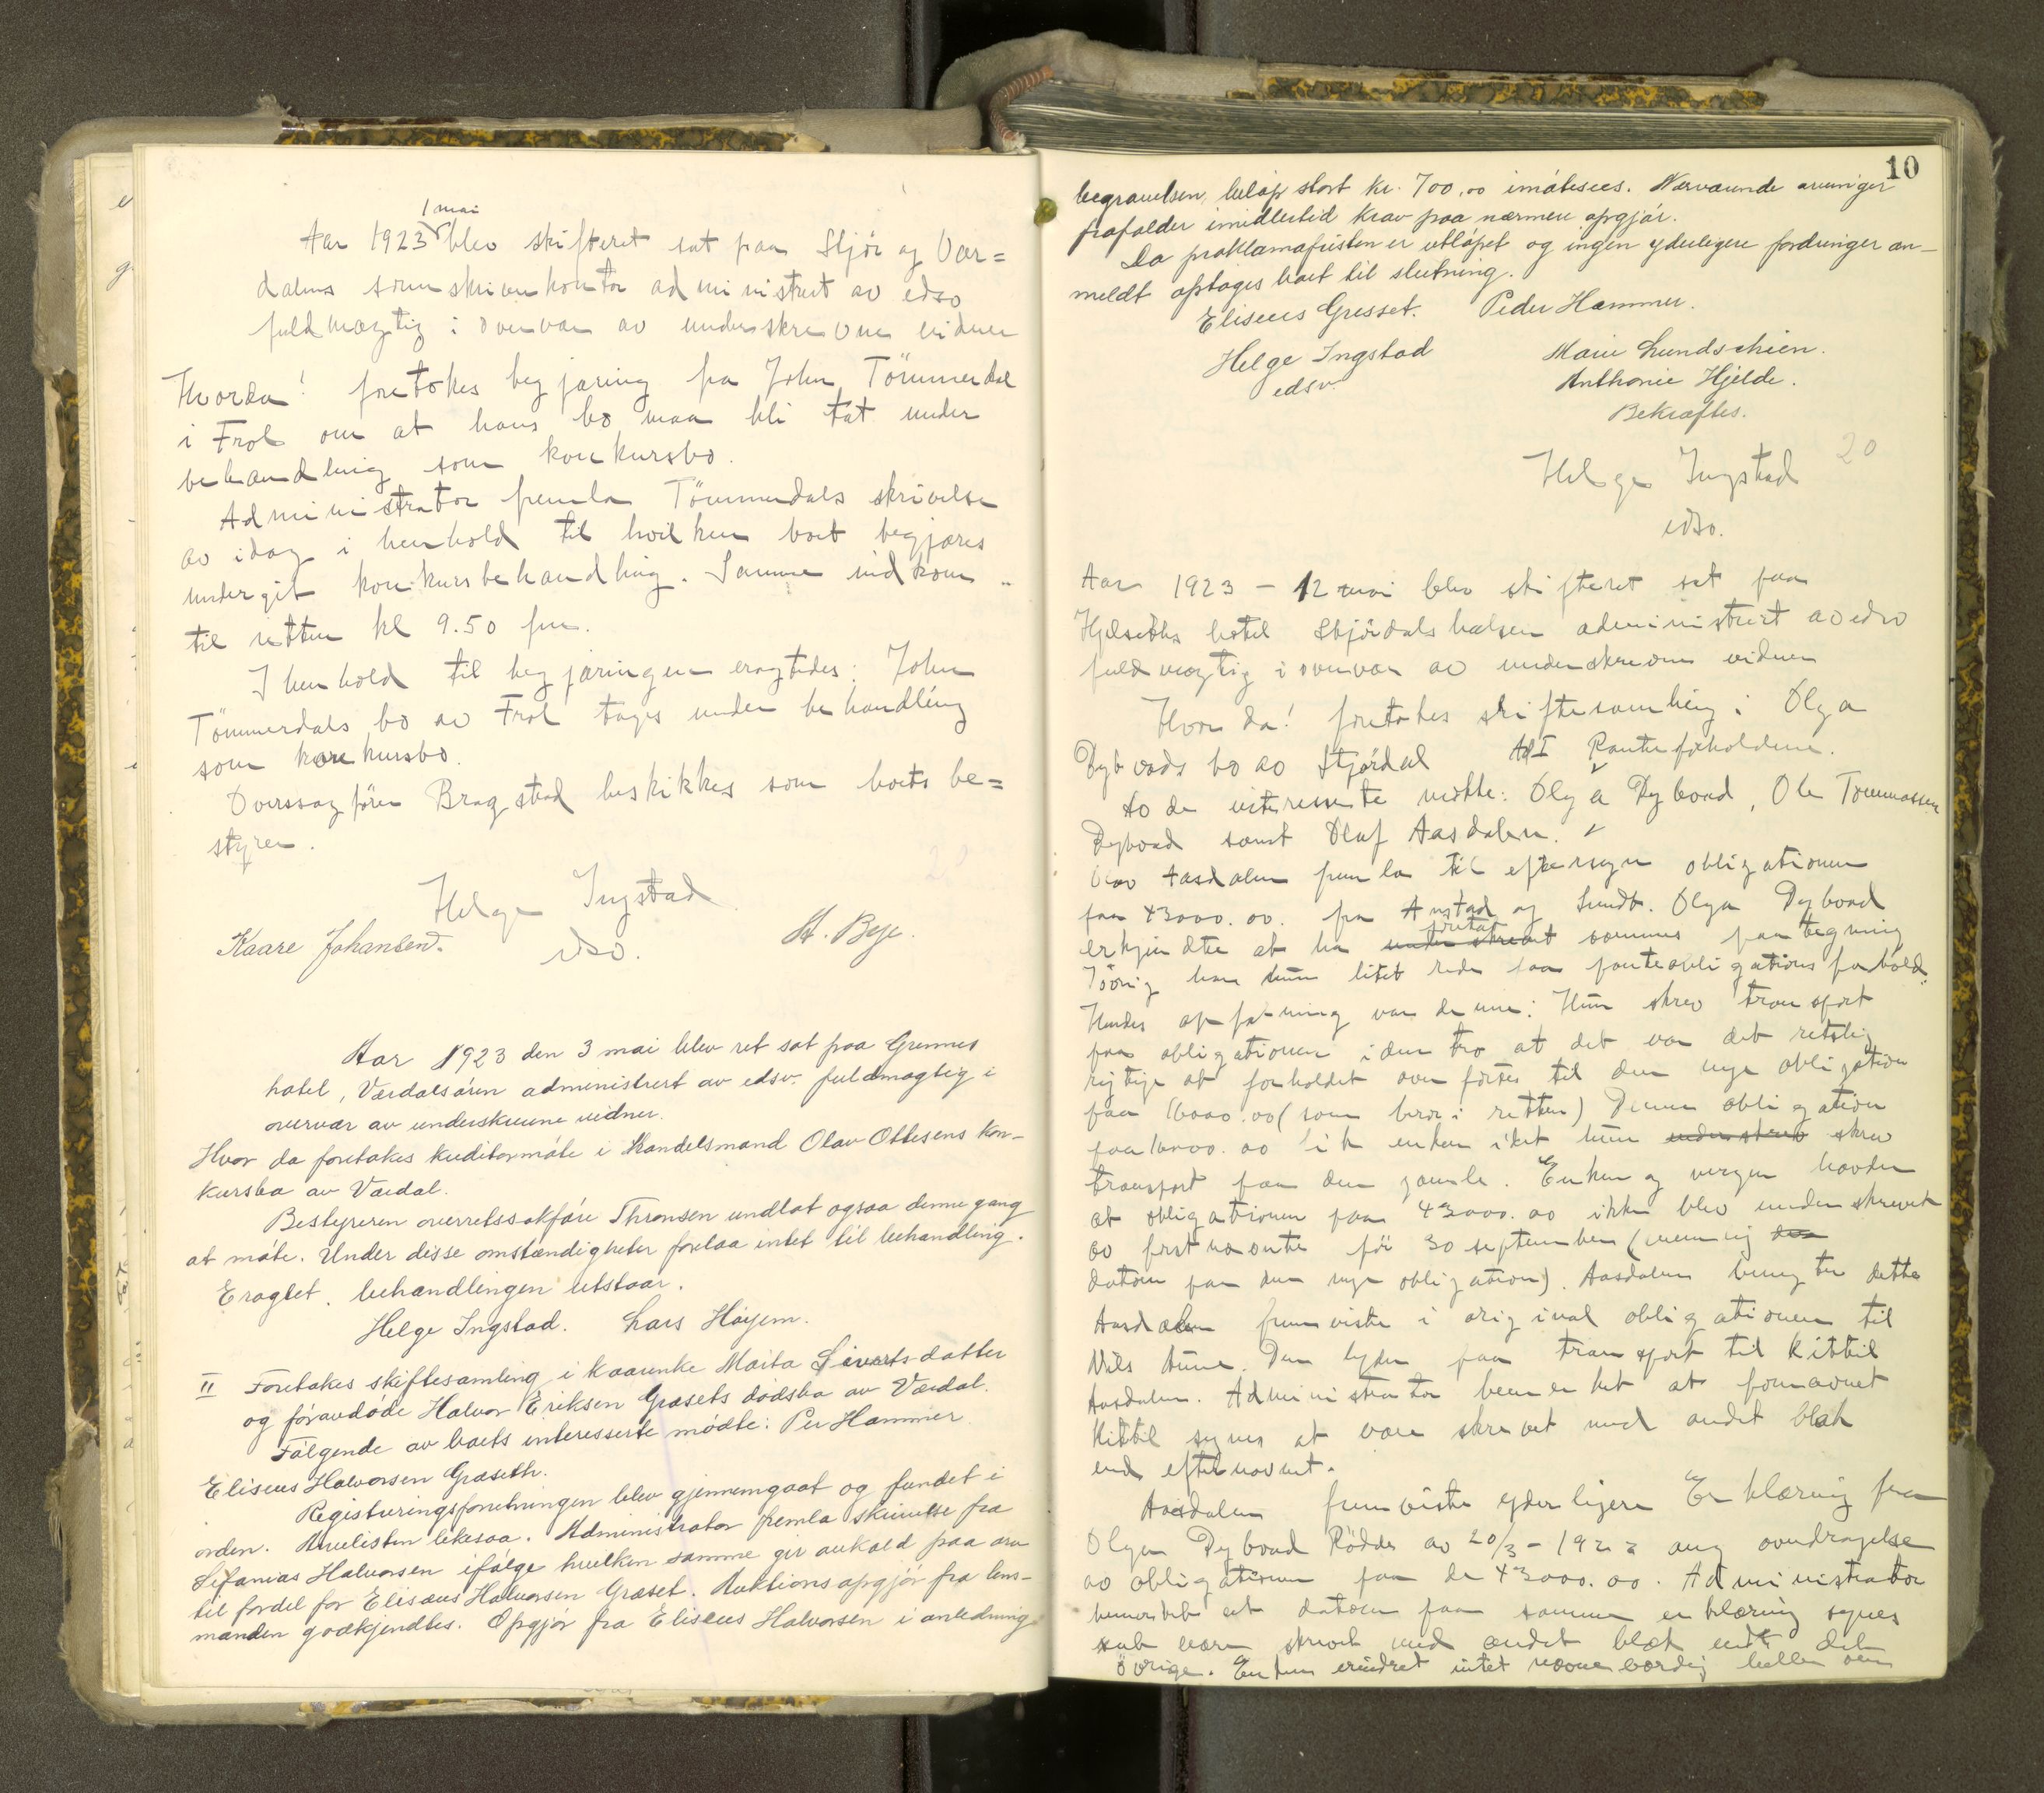 1 mai
Aar 1923 blev skifteret sat paa Stjør og Vær=
dalens sorenskriverkontor administrert av edsv
fuldmægtig i overvær av underskrevne vidner
Hvorda! foretokes begjæring fra John Tömmerdal
i Frol om at hans bo maa bli tat under
behandling som konkursbo.
Administrator fremla Tömmerdals skrivelse
av idag i henhold til hvilken boet begjæres
undergit konkursbehandling. Samme indkom
til retten kl 9.50 fm.
I henhold til begjæringen eragtedes: John
Tömmerdals bo av Frol tages under behandling
som konkursbo.
Overssagförer Bragstad beskikkes som boets be=
styrer.
Helge Ingstad
edsv.
Kaare Johansen.
A. Bye.
Aar 1923 den 3 mai blev ret sat paa Grennes
hotel, Værdalsøren administrert av edsv. fuldmægtig i
overvær av underskrevne vidner.
Hvor da foretokes kreditormøte i Handelsmand Olav Ottesens kon-
kursbo av Værdal.
Bestyreren overretssakfører Thronsen undlot ogsaa denne gang
at møte. Under disse omstændigheter forelaa intet til behandling.
Eragtet. behandlingen utstaar.
Helge Ingstad. Lars Høyem.
II Foretokes skiftesamling i kaarenke Marta Sivertsdatter
og føravdøde Halvor Eriksen Græsets dødsbo av Værdal.
Følgende av boets interesserte mødte: Per Hammer
Eliseus Halvorsen Græseth.
Registreringsforretningen blev gjennemgaat og fundet i
orden. Arvelisten likesaa. Administrator fremla skrivelse fra
Sefanias Halvorsen ifølge hvilken samme gir avkald paa arv
til fordel for Elisæus Halvorsen Græset. Auktionsopgjør fra lens-
manden godkjendtes. Opgjør fra Eliseus Halvorsen i anledning
10
begravelsen, beløp stort kr. 700,00 imøtesees. Nærværende arvinger
frafalder imidlertid krav paa nærmere opgjør.
Da proklamafristen er utløpet og ingen yderligere fordringer an-
meldt optages boet til slutning.
Eliseus Gresset. Peder Hammer.
Helge Ingstad
edsv.
Marie Lundschien.
Anthonie Hjelde.
Bekræftes.
Helge Ingstad 20
edsv.
Aar 1923 - 12 mai blev skifteret sat paa
Hjelseths hotel Stjördalshalsen administrert av edsv
fuldmægtig i overvær av underskrevne vidner
Hvor da! foretokes skiftesamling i Olga
Dybvads bo av Stjördal Ad I Panteforholdene.
Av de interesserte mötte: Olga Dybvad, Ole Tommassen
Dybvad samt Olaf Aasdalen.
Olav Aasdalen fremla til eftersyn obligationen
paa 43000.00. fra Anstad og Lundt. Olga Dybvad
foretat
erkjendte at ha underskrevet sammes paategning
Iövrig har hun litet rede paa panteobligations forhold.
Hendes opfatning var denne: Hun skrev transport
paa obligationen i den tro at det var det retslig
rigtige at forholdet overförtes til den nye obligation
paa 16000.00 (som bero i retten) Denne obligation
paa 16000.00 lik enken idet hun underskrev skrev
transport paa den gamle. Enken og vergen hævder
at obligationen paa 43000.00 ikke blev underskrevet
av förstnævnte för 30 september (nemlig den
datoen paa den nye obligation). Aasdalen benegter dette
Aasdalen fremviste i original obligationen til
Nils Aune. Den lyder paa transport til Kittil
Aasdalen. Administrator bemerket at fornavnet
Kittil synes at være skrevet med andet blæk
end efternavnet.
Aasdalen fremviste yderligere Erklæring fra
Olga Dybvad Rödde av 20/3-1922 ang overdragelse
av obligationen paa de 43000.00. Administrator
bemerket at datoen paa samme erklæring synes
at være skrevet med andet blæk end det
övrige. Enken erindret intet nævneværdig heller om